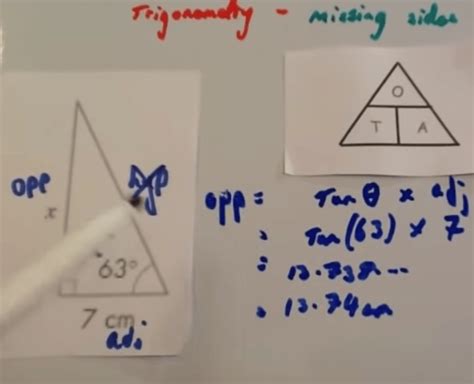 Trigonometry - missing sides
O
T A
opp
hyp
x
63°
7 cm
adj
opp = Tan θ x adj
= Tan(63) x 7
= 13.738...
= 13.74cm